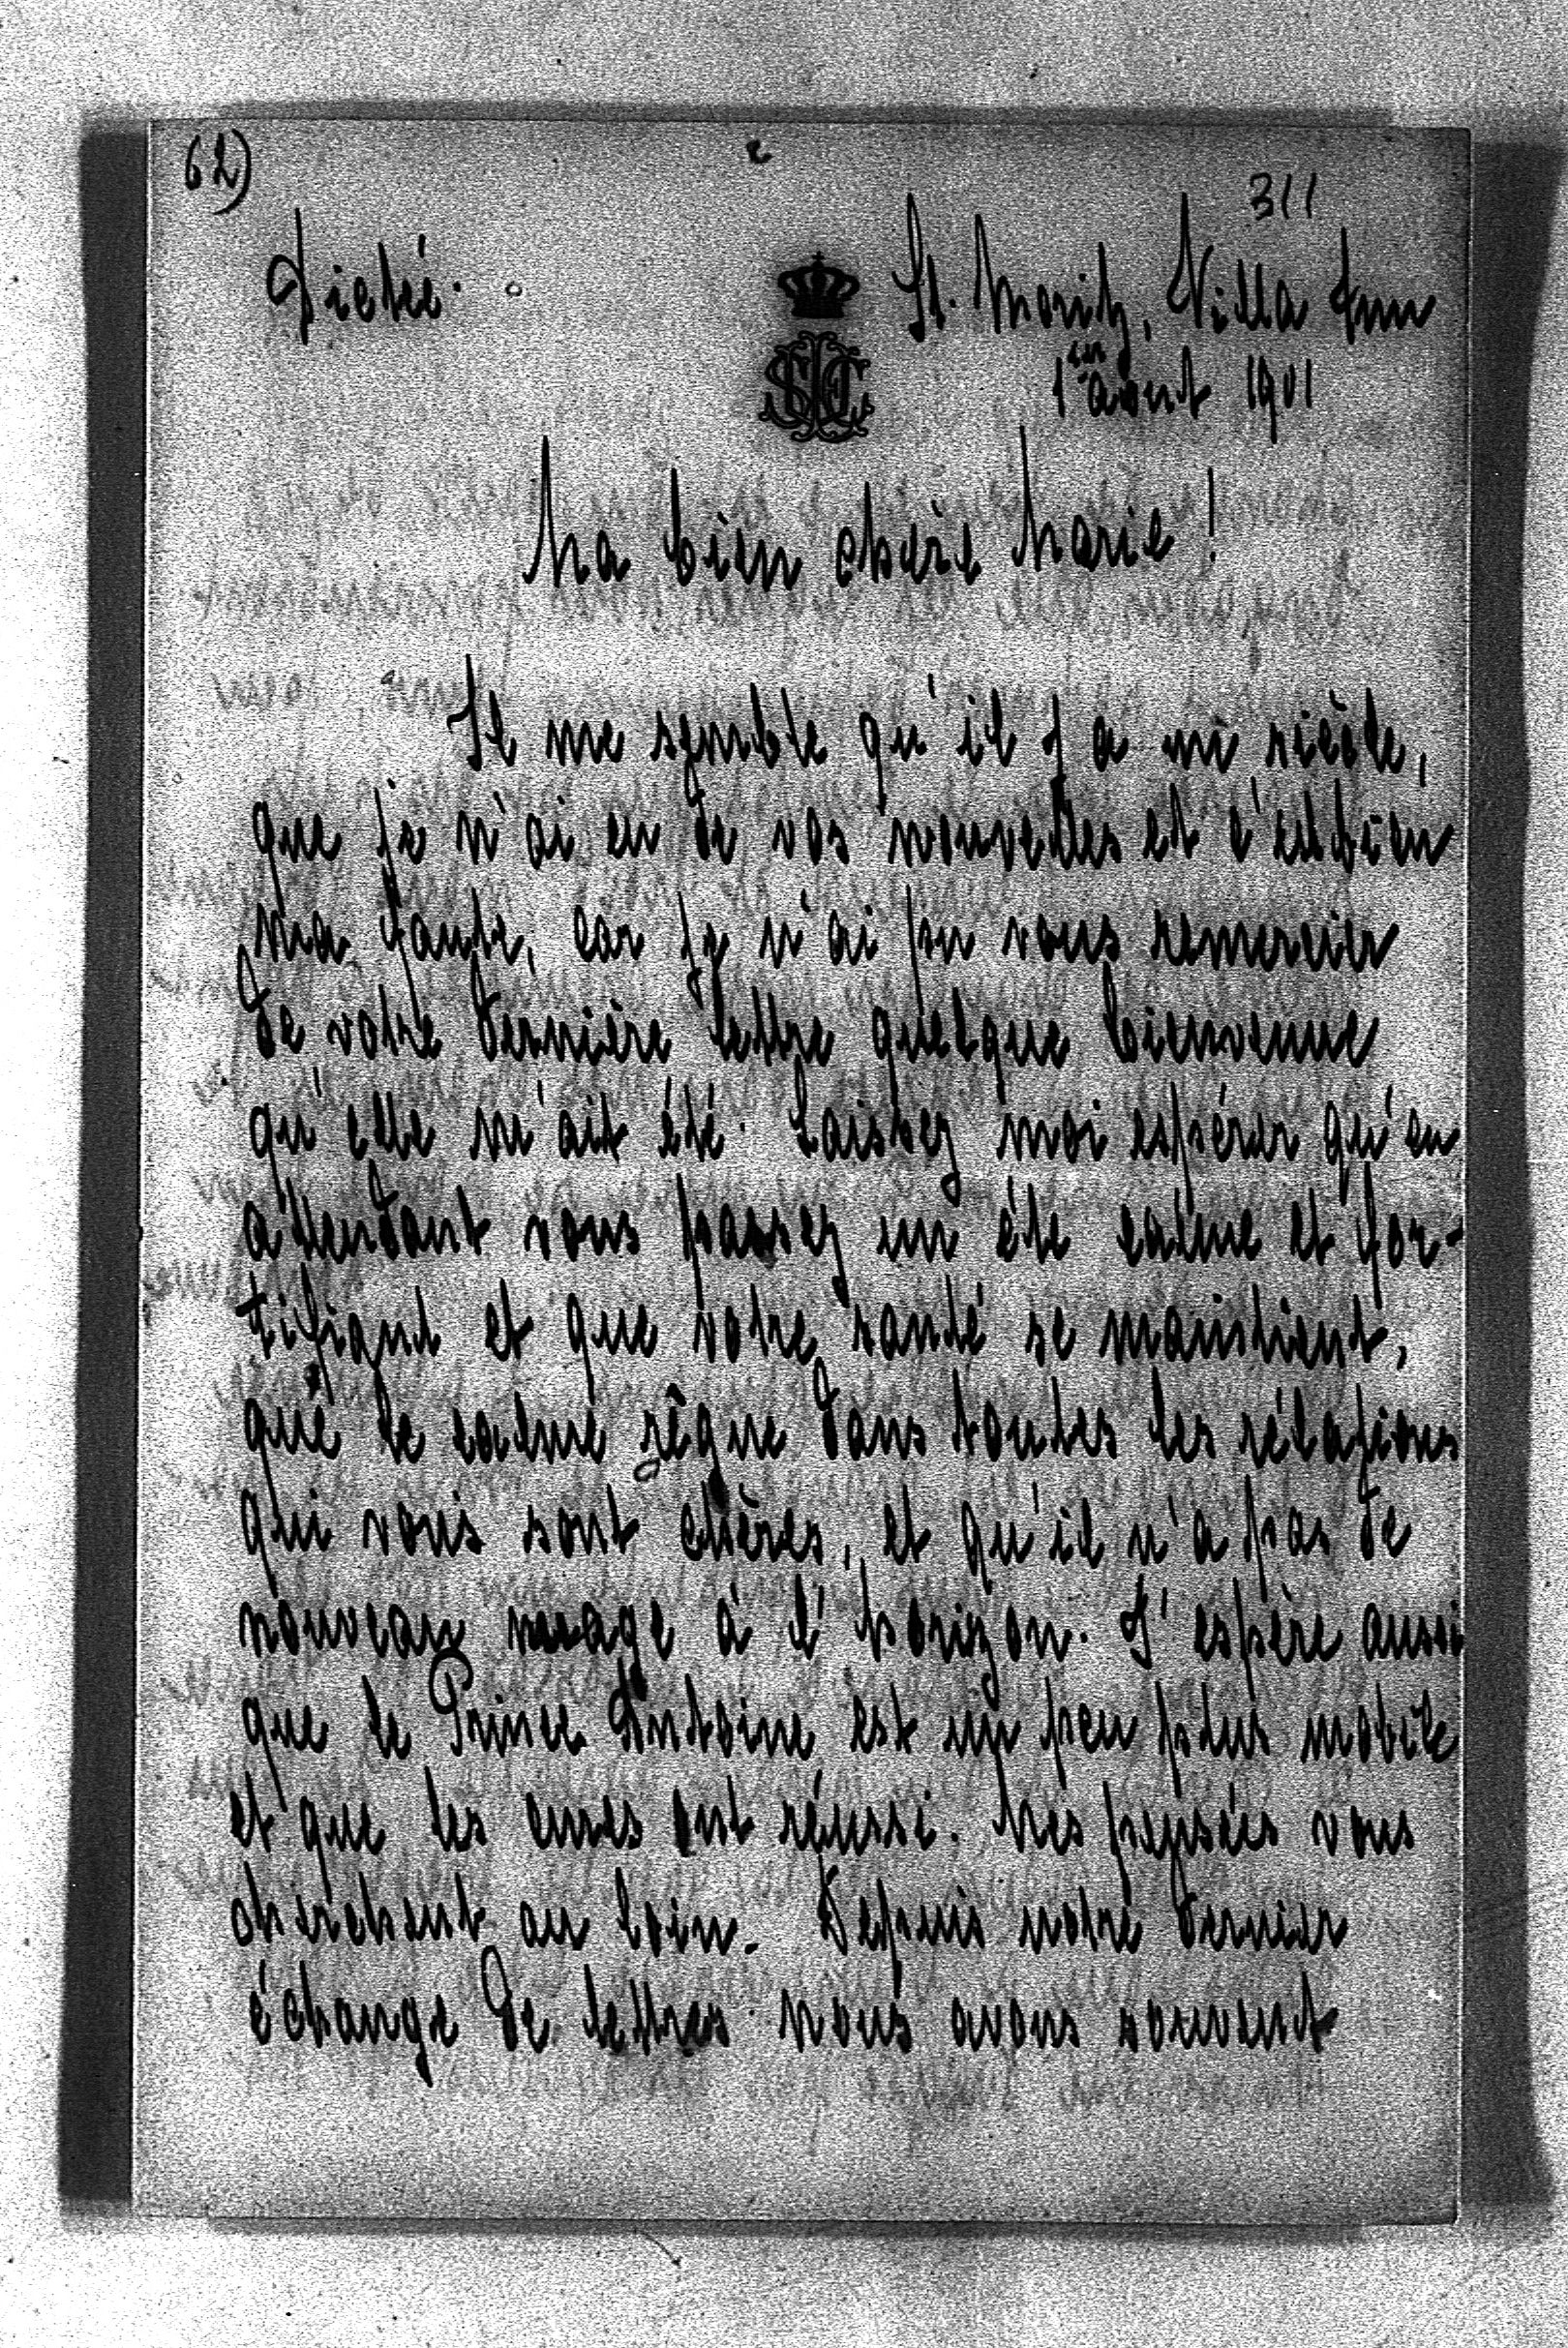 62)
311
Dictée.
St. Moritz, Villa
1er août 1901
Ma bien chère Marie!
Il me semble qu'il y a un siècle,
que je n'ai eu de vos nouvelles et c'est bien
ma faute, car je n'ai pu vous remercier
de votre dernière lettre quelque bienvenue
qu'elle m'ait été. Laissez moi espérer qu'en
attendant vous passez un été calme et for-
tifiant et que votre santé se maintient,
que le calme règne dans toutes les rélations
qui vous sont chères, et qu'il n'a pas de
nouveau nuage à l'horizon. J'espère aussi
que le Prince Antoine est un peu plus mobile
et que les cures ont réussi. Mes pensées vous
cherchent au loin. Depuis notre dernier
échange de lettres nous avons souvent